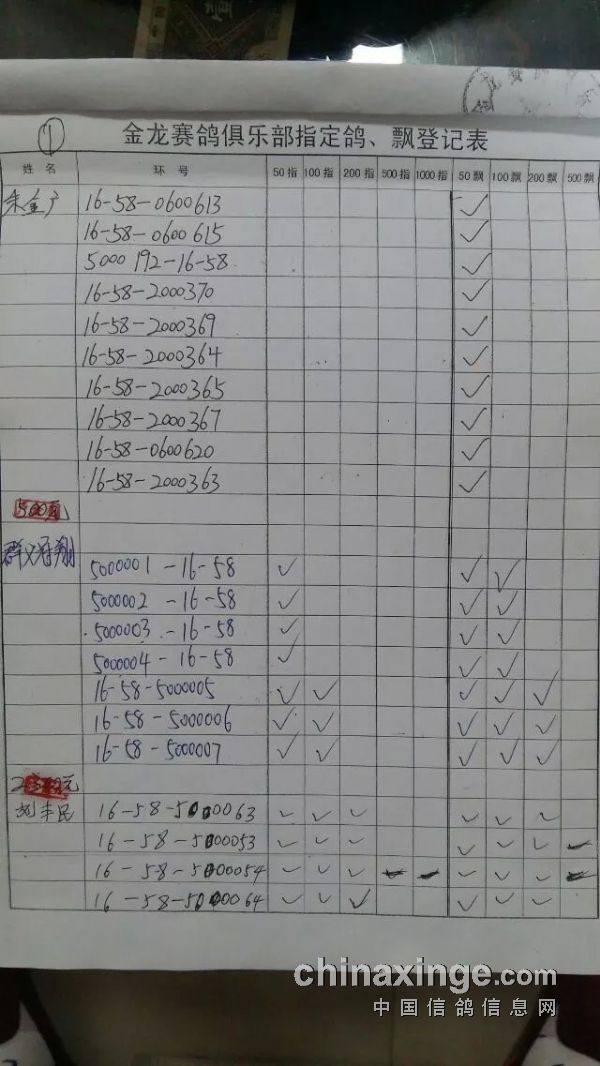 ①
金龙赛鸽俱乐部指定鸽、飘登记表
姓名 环号 50指 100指 200指 500指 1000指 50飘 100飘 200飘 500飘
朱金广 16-58-0600613 ✓
16-58-0600615 ✓
5000192-16-58 ✓
16-58-2000370 ✓
16-58-2000369 ✓
16-58-2000364 ✓
16-58-2000365 ✓
16-58-2000367 ✓
16-58-0600620 ✓
16-58-2000363 ✓
500元
群义冠翔
5000001-16-58 ✓ ✓ ✓
5000002-16-58 ✓ ✓ ✓
5000003-16-58 ✓ ✓ ✓
5000004-16-58 ✓ ✓ ✓
16-58-5000005 ✓ ✓ ✓ ✓ ✓
16-58-5000006 ✓ ✓ ✓ ✓ ✓
16-58-5000007 ✓ ✓ ✓ ✓ ✓
元
刘丰民 16-58-5000063 ✓ ✓ ✓ ✓ ✓ ✓
16-58-5000053 ✓ ✓ ✓ ✓ ✓ ✓
16-58-5000054 ✓ ✓ ✓ ✓ ✓ ✓
16-58-5000064 ✓ ✓ ✓ ✓ ✓ ✓
chinaxinge.com
中国信鸽信息网